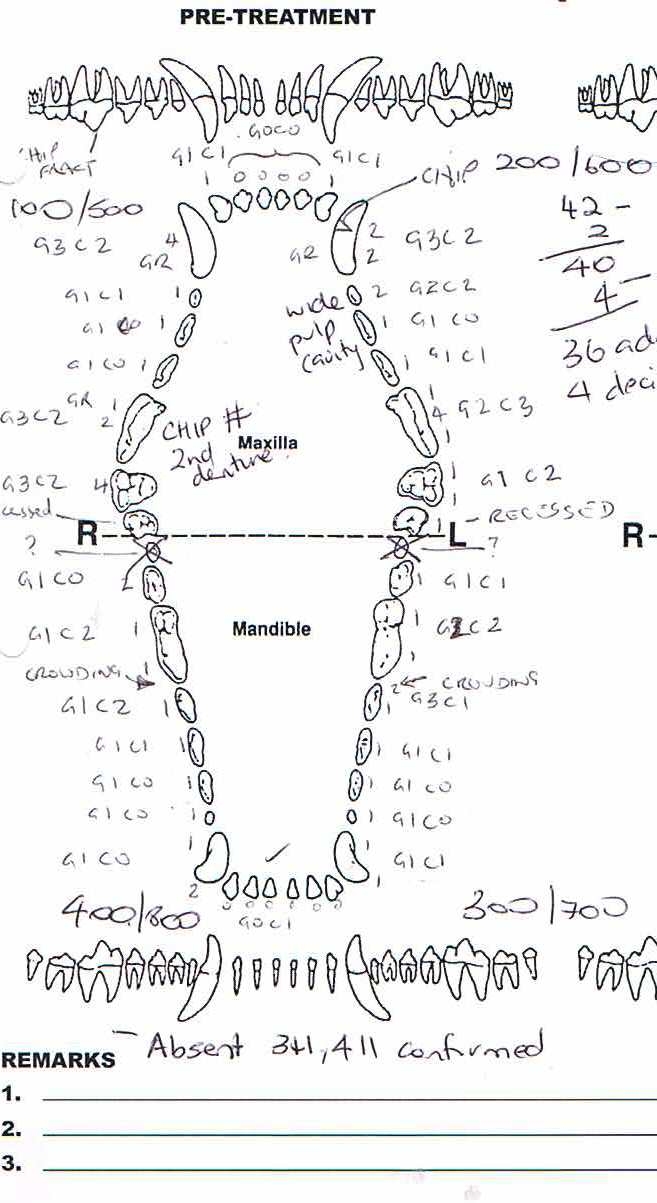 PRE-TREATMENT
G0C0
CHIP
FRACT
G1C1
G1C1
1
0 0 0 0
1
CHIP
200/600
100/500
42 -
2
40
4 -
36
4 deci
G3C2
4
GR
GR
2
2
G3C2
G1C1
1
wide
pulp
cavity
2
G2C2
1
1
G1C0
G1C0
1
1
G1C1
G3C2
GR
1
2
CHIP #
2nd
denture.
Maxilla
1
4
G2C3
1
G3C2
4
1
G1C2
1
cessed
1
- RECESSED
R
L
R
?
?
G1C0
1
G1C1
G1C2
1
Mandible
1
C2
1
CROWDING
1
CROWDING
G1C2
1
2
G3C1
G1C1
1
1
G1C1
G1C0
1
1
G1C0
G1C0
1
1
G1C0
G1C0
1
2
✓
1
1
G1C1
400/800
0 0 0 0 0 0
G0C1
300/700
REMARKS
Absent 311, 411 confirmed
1.
2.
3.